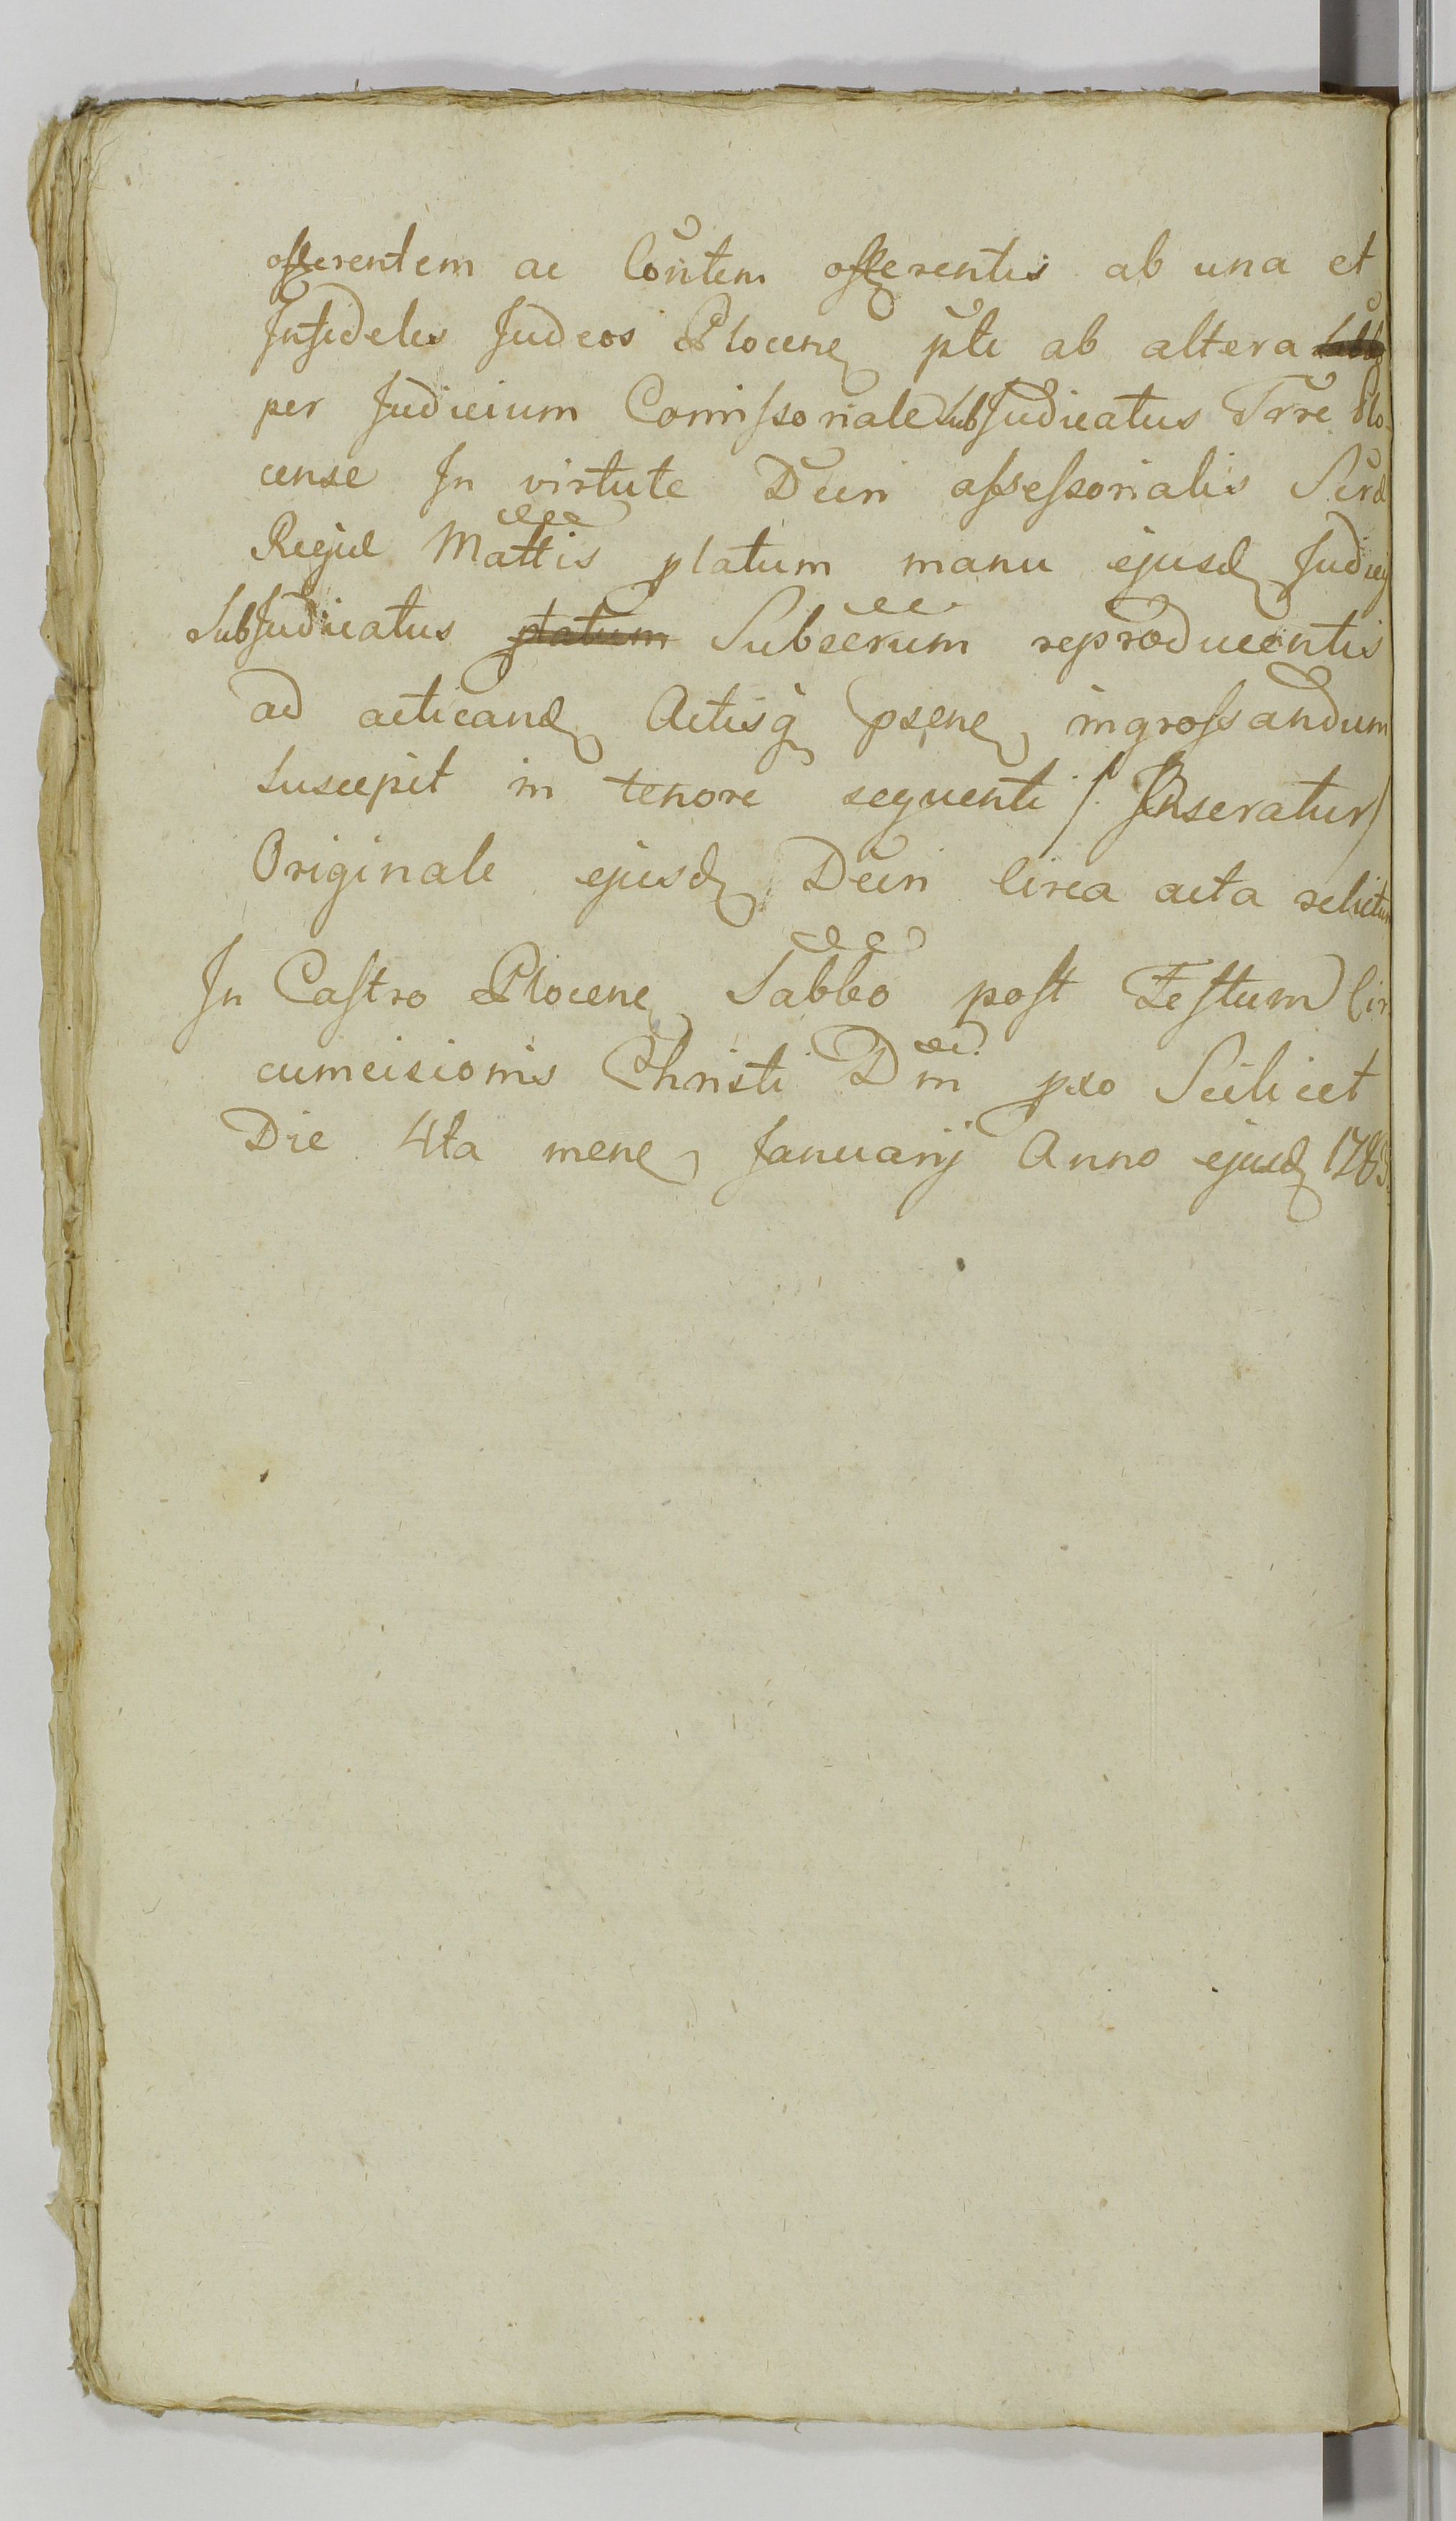 offerentem ac Contem offerentis ab una et
Infideles Judeos Plocen pte ab altera
per Judicium Comissoriale SubJudicatus Trre Plo-
cense In virtute Dcri assessorialis Scrd
Regie Mattis platum manu ejusd Judicij
SubJudicatus platum Subscrum reproducentis
ad acticand Actisq psen ingrossandum
suscepit in tenore sequenti /: Inseratur/
Originale ejusd Dcri circa acta relictum
In Castro Plocen Sabbo post Festum Cir
cumcisionis Christi Dni pxo Scilicet
Die 4ta mens Januarij Anno ejusd 1783